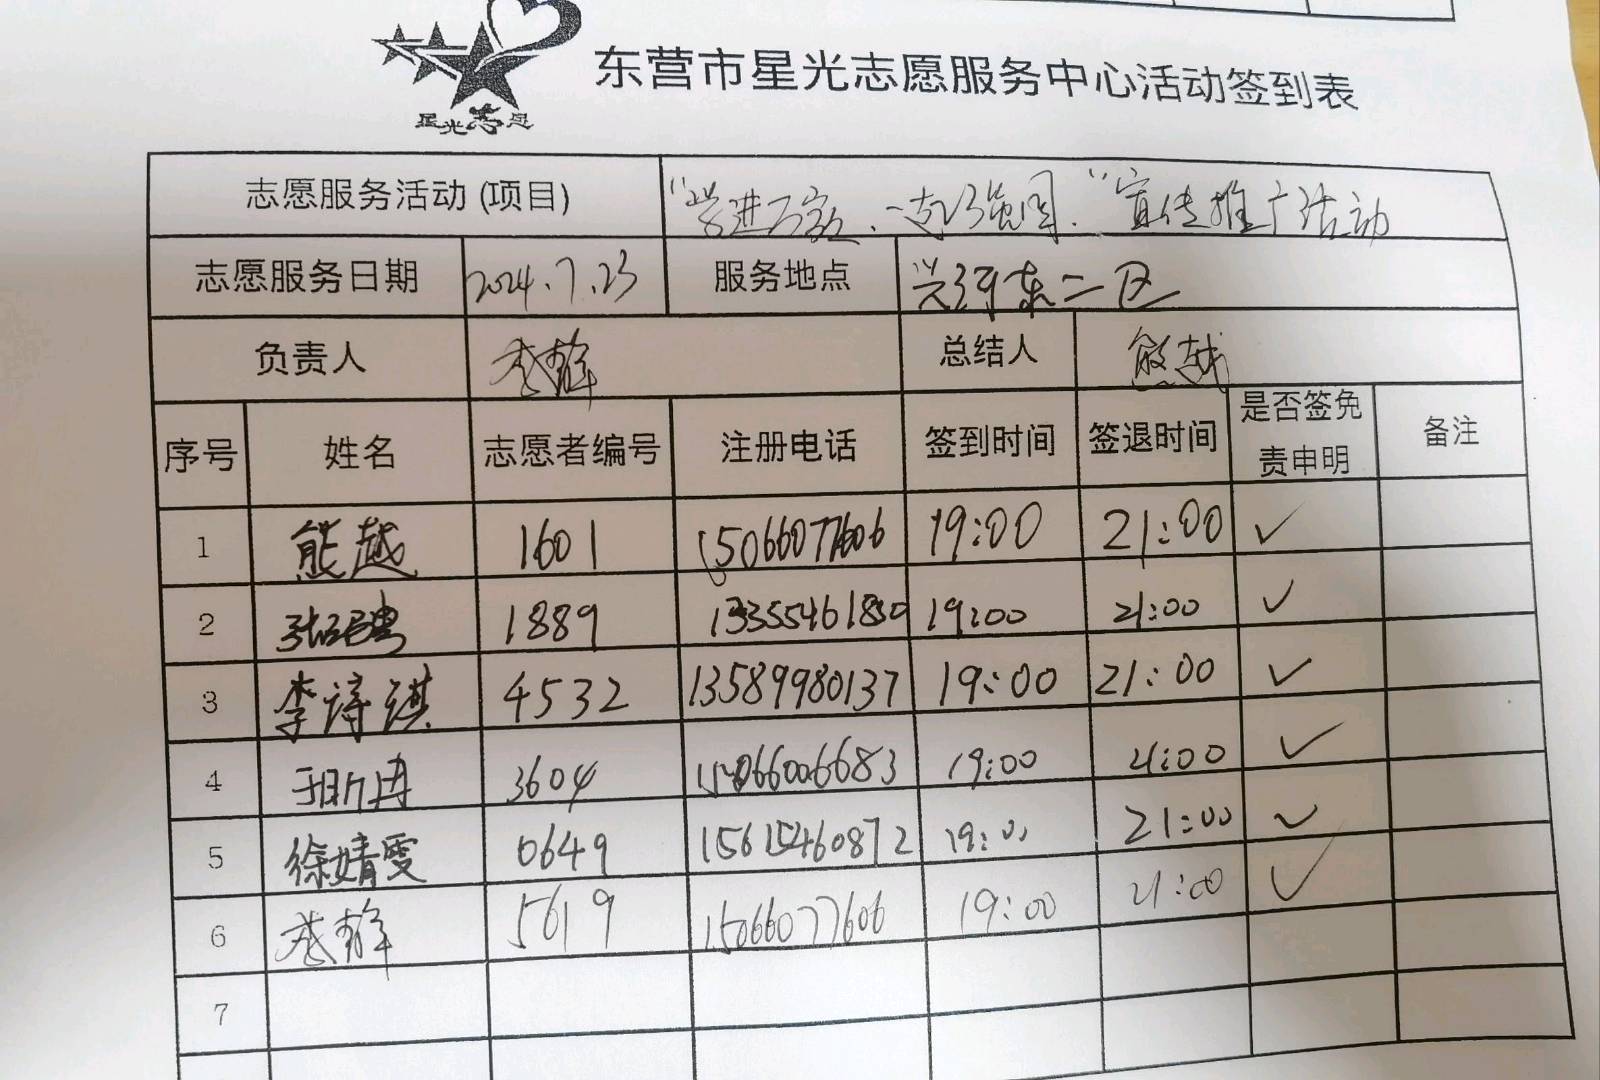 星光志愿
东营市星光志愿服务中心活动签到表
志愿服务活动 (项目) "学进万家、一起强国"宣传推广活动
志愿服务日期 2024.7.23 服务地点 兴河东二区
负责人 李静 总结人 熊越
序号 姓名 志愿者编号 注册电话 签到时间 签退时间 是否签免责申明 备注
1 熊越 1601 15066077606 19:00 21:00 ✓
2 1889 13355461830 19:00 21:00 ✓
3 李诗淇 4532 13589980137 19:00 21:00 ✓
4 3604 15066006683 19:00 21:00 ✓
5 徐婧雯 0649 15615460872 19:00 21:00 ✓
6 李静 5619 15066077606 19:00 21:00 ✓
7